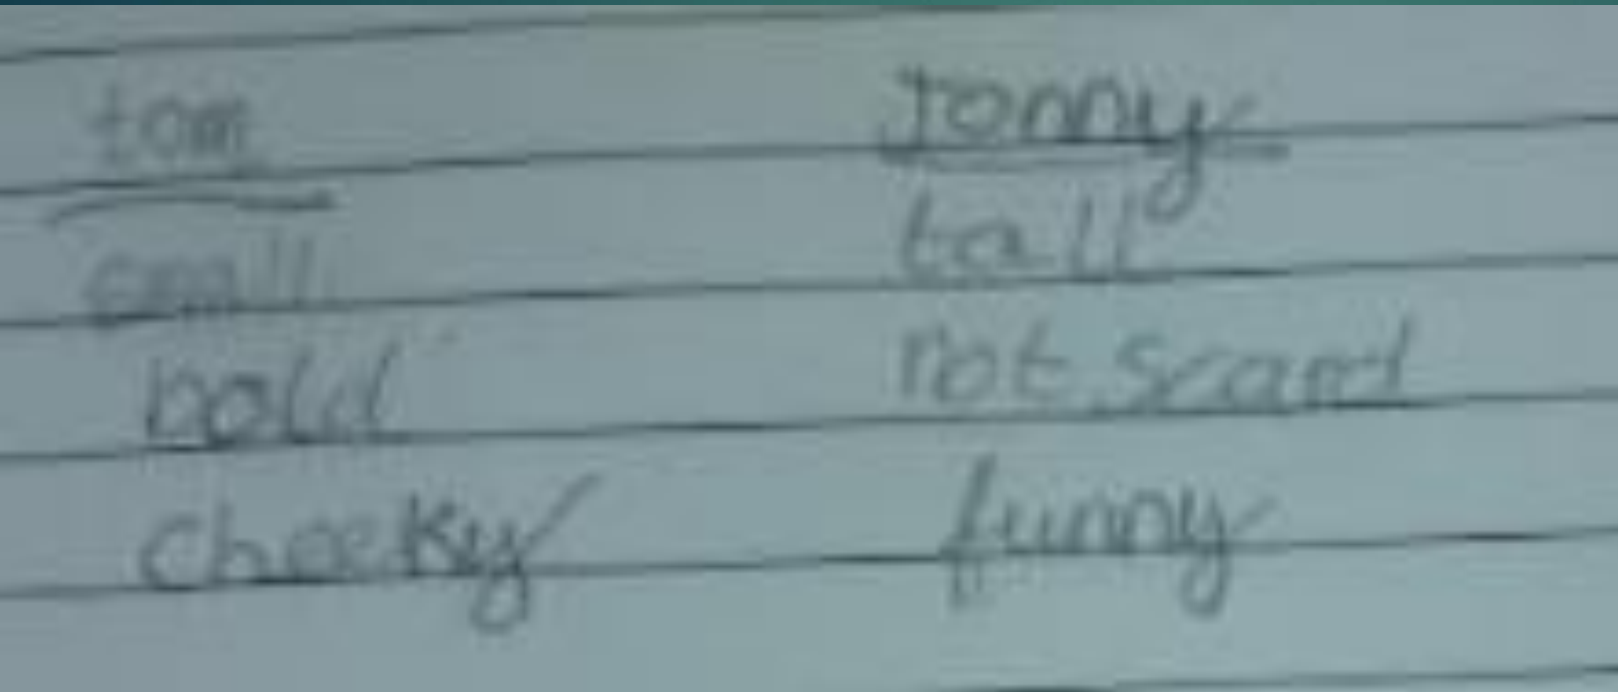 tom
small
bold
cheeky
Jonny
tall
not scard
funny